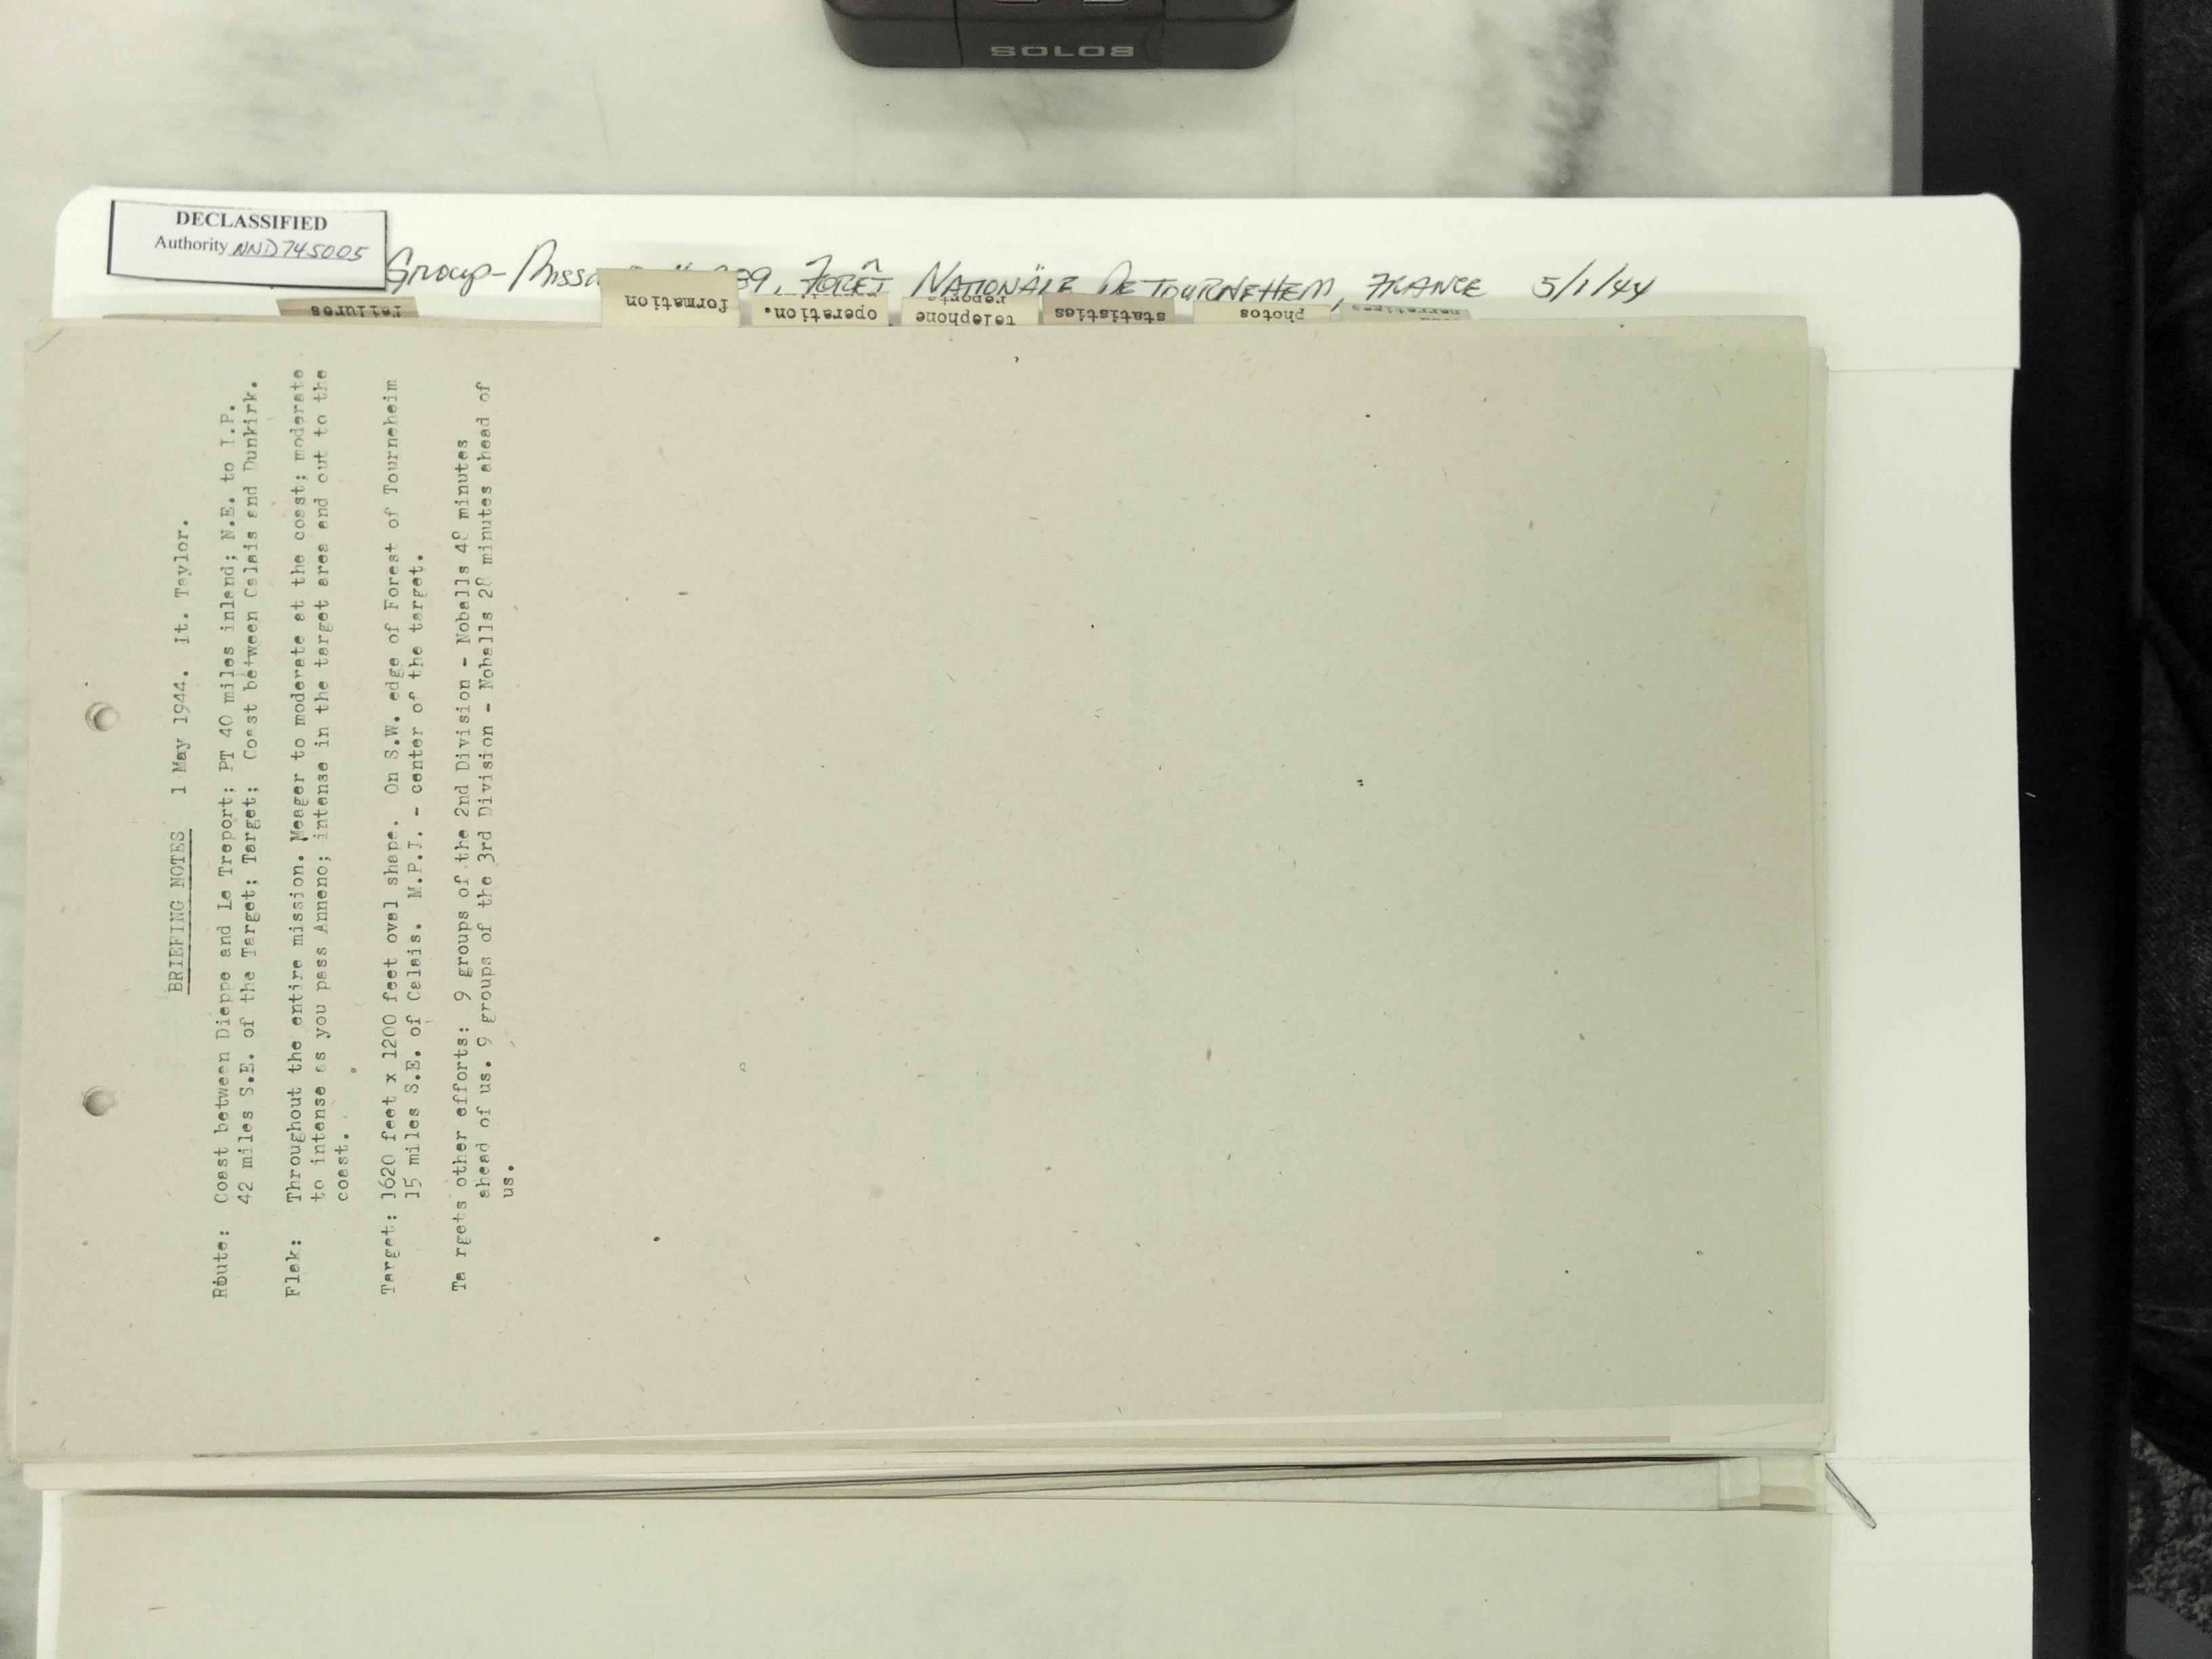 SOLO8
DECLASSIFIED
Authority NND745005
Group- 89, FORÊT NATIONALE DE TOURNEHEM, FRANCE 5/1/44
failures
formation
operation.
telephone
reports
statistics
photos
narratives
BRIEFING NOTES 1 May 1944. Lt. Taylor.
Route: Coast between Dieppe and Le Treport; PT 40 miles inland; N.E. to I.P.
42 miles S.E. of the Target; Target; Coast between Calais and Dunkirk.
Flak: Throughout the entire mission. Meager to moderate at the coast; moderate
to intense as you pass Anneno; intense in the target area and out to the
coast.
Target: 1620 feet x 1200 feet oval shape. On S.W. edge of Forest of Tourneheim
15 miles S.E. of Calais. M.P.I. - center of the target.
Ta rgets other efforts: 9 groups of the 2nd Division - Noballs 48 minutes
ahead of us. 9 groups of the 3rd Division - Noballs 28 minutes ahead of
us.